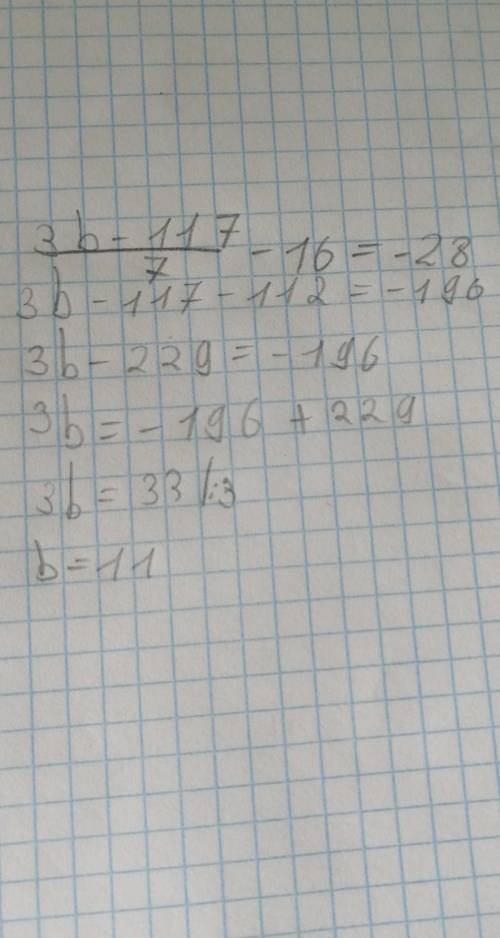 3b - 117
7
- 16 = -28
3b - 117 - 112 = -196
3b - 229 = -196
3b = -196 + 229
3b = 33 /:3
b = 11